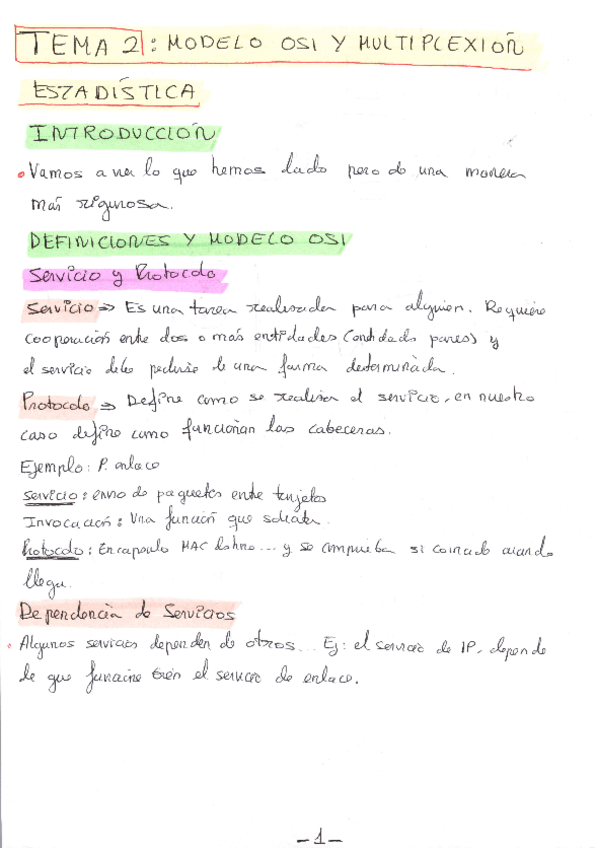 TEMA 2: MODELO OSI Y MULTIPLEXIÓN
ESTADÍSTICA
INTRODUCCIÓN
• Vamos a ver lo que hemos dado pero de una manera
más rigurosa.
DEFINICIONES Y MODELO OSI
Servicio y Protocolo
Servicio => Es una tarea realizada para alguien. Requiere
cooperación entre dos o más entidades (entidades pares) y
el servicio debe pedirse de una forma determinada.
Protocolo => Define como se realiza el servicio, en nuestro
caso define como funcionan las cabeceras.
Ejemplo: P. enlace
Servicio: envio de paquetes entre tarjetas
Invocación: Una función que solicita
Protocolo: Encapsula MAC destino... y se comprueba si coincide cuando
llega.
Dependencia de Servicios
• Algunos servicios dependen de otros... Ej: el servicio de IP, depende
de que funcione bien el servicio de enlace.
-1-